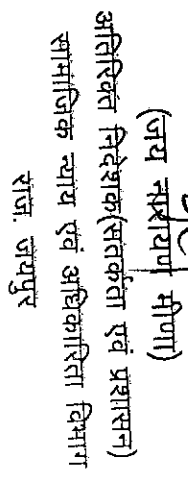 (जय नारायण मीणा)
अतिरिक्त निदेशक(सतर्कता एवं प्रशासन)
सामाजिक न्याय एवं अधिकारिता विभाग
राज. जयपुर